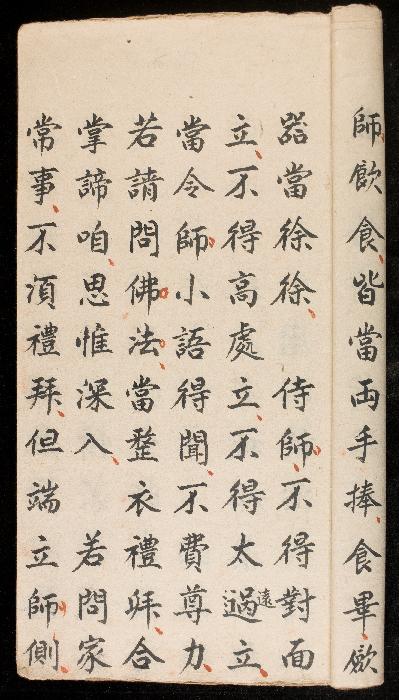 師飲食皆當両手捧、食畢、歛
器當徐徐、 侍師、不得對面
立、不得高處立、不得太過遠立、
當令師小語得聞、不費尊力、
若請問佛法、當整衣禮拜、合
掌諦咱、思惟深入、 若問家
常事、不須禮拜、但端立師側、